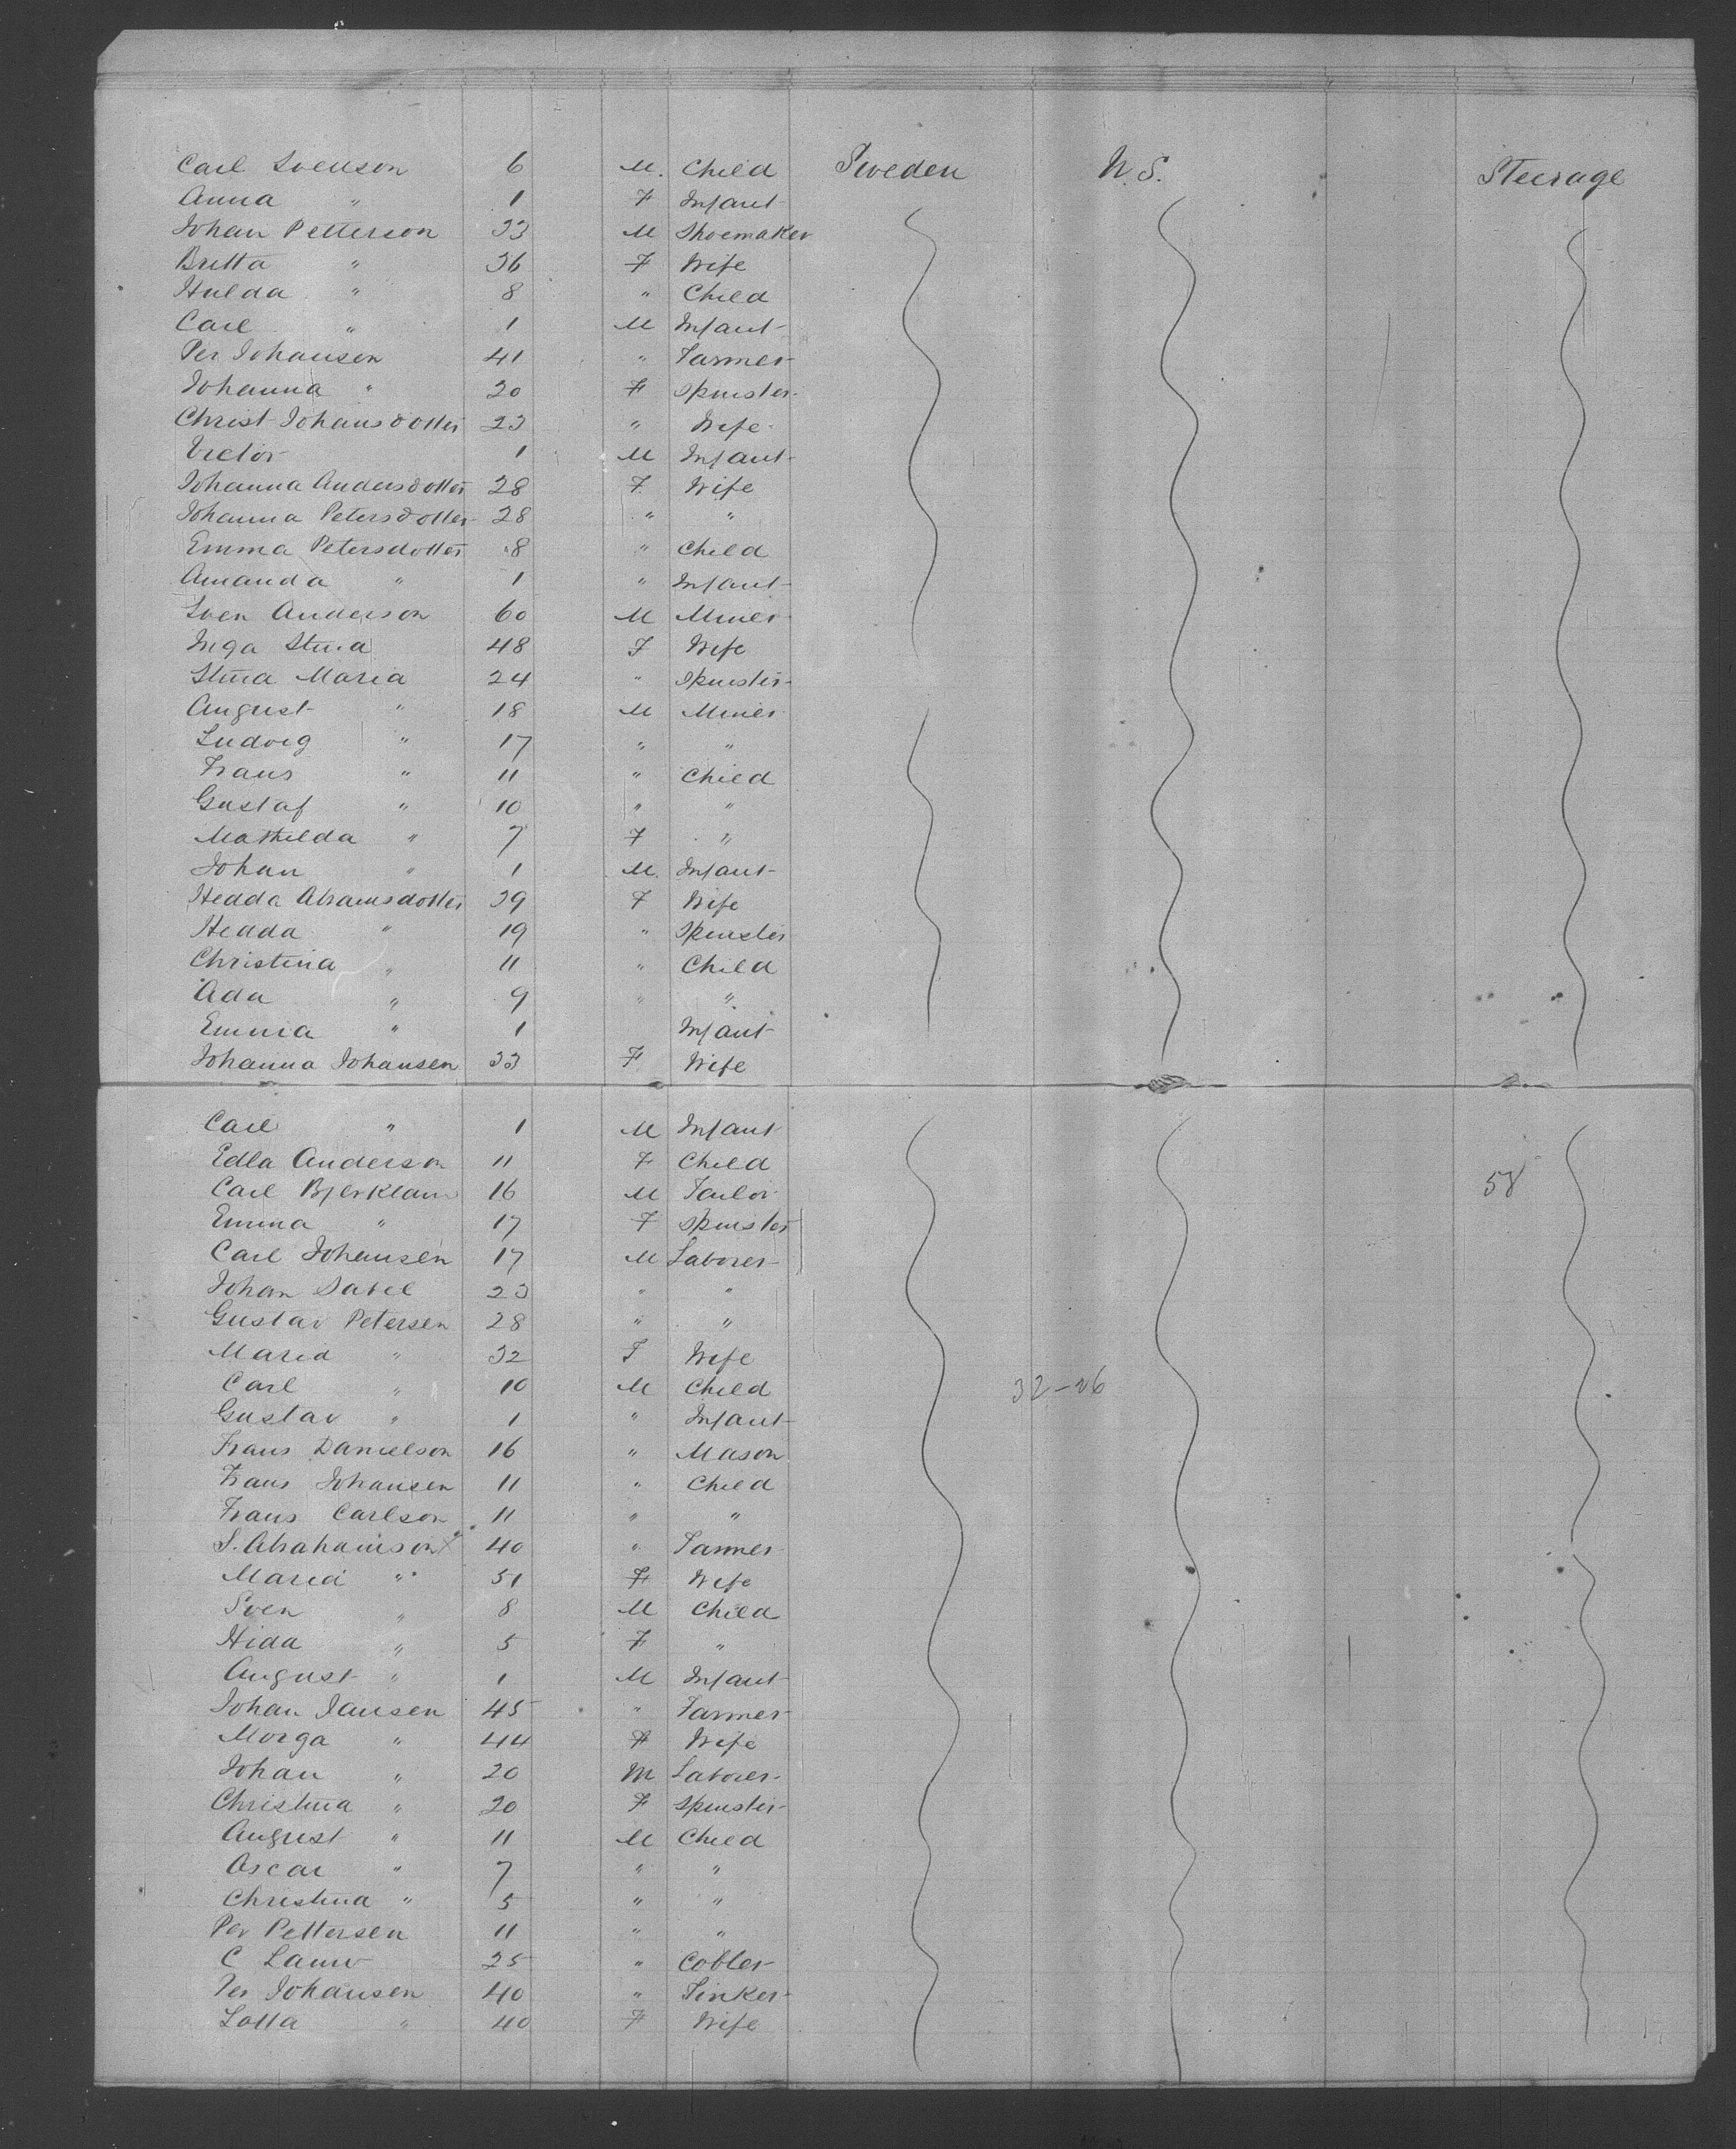 Carl Svenson 6 M. Child Sweden U.S. Steerage
Anna " 1 F Infant
Johan Petterson 33 M Shoemaker
Britta " 36 F Wife
Hulda " 8 " Child
Carl " 1 M Infant
Per Johansen 41 " Farmer
Johanna " 20 F Spinster
Christ Johansdotter 23 " Wife
Victor 1 M Infant
Johanna Andersdotter 28 F. Wife
Johanna Petersdotter 28 " "
Emma Petersdotter 8 " Child
Amanda " 1 " Infant
Sven Anderson 60 M Miner
Inga Stina 48 F Wife
Stina Maria 24 " Spinster
August " 18 M Miner
Ludvig " 17 " "
Frans " 11 " Child
Gustaf " 10 " "
Mathilda " 7 F "
Johan " 1 M. Infant
Hedda Abramsdotter 39 F Wife
Hedda " 19 " Spinster
Christina " 11 " Child
Ada " 9 " "
Emma " 1 Infant
Johanna Johansen 33 F Wife
Carl " 1 M Infant
Edla Anderson 11 F Child
Carl 16 M Tailor 58
Emma " 17 F Spinster
Carl Johansen 17 M Laborer
Johan 23 " "
Gustav Petersen 28 " "
Maria " 32 F Wife
Carl " 10 M Child 32-26
Gustav " 1 " Infant
Frans Danielson 16 " Mason
Frans Johansen 11 " Child
Frans Carlson 11 " "
S. Abrahamson X 40 " Farmer
Maria " 51 F Wife
Sven " 8 M Child
Hida " 5 F "
August " 1 M Infant
Johan Jansen 45 " Farmer
Morga " 44 F Wife
Johan " 20 M Laborer
Christina " 20 F Spinster
August " 11 M Child
Oscar " 7 " "
Christina " 5 " "
Per Pettersen 11 " "
C 25 " Cobler
Per Johansen 40 " Tinker
Lotta " 40 F Wife